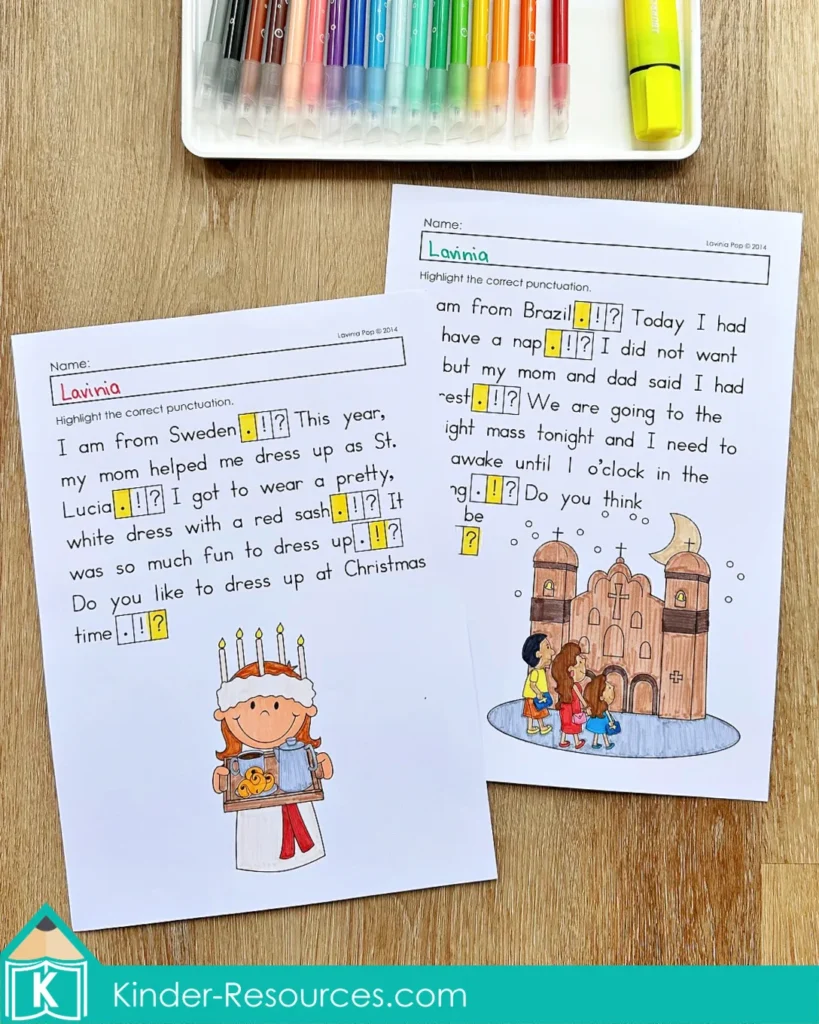 Lavinia Pop © 2014
Name:
Lavinia
Highlight the correct punctuation.
I am from Sweden . ! ? This year,
my mom helped me dress up as St.
Lucia . ! ? I got to wear a pretty,
white dress with a red sash . ! ? It
was so much fun to dress up . ! ?
Do you like to dress up at Christmas
time . ! ?
Name:
Lavinia Pop © 2014
Lavinia
Highlight the correct punctuation.
am from Brazil . ! ? Today I had
have a nap . ! ? I did not want
but my mom and dad said I had
rest . ! ? We are going to the
ight mass tonight and I need to
awake until 1 o'clock in the
ng . ! ? Do you think
be
?
K
Kinder-Resources.com